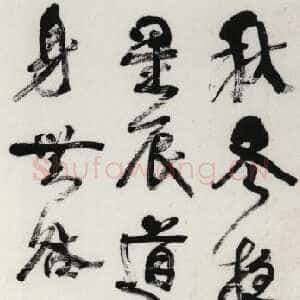 秋冬
星辰道
身無咎
Shufawang.CN